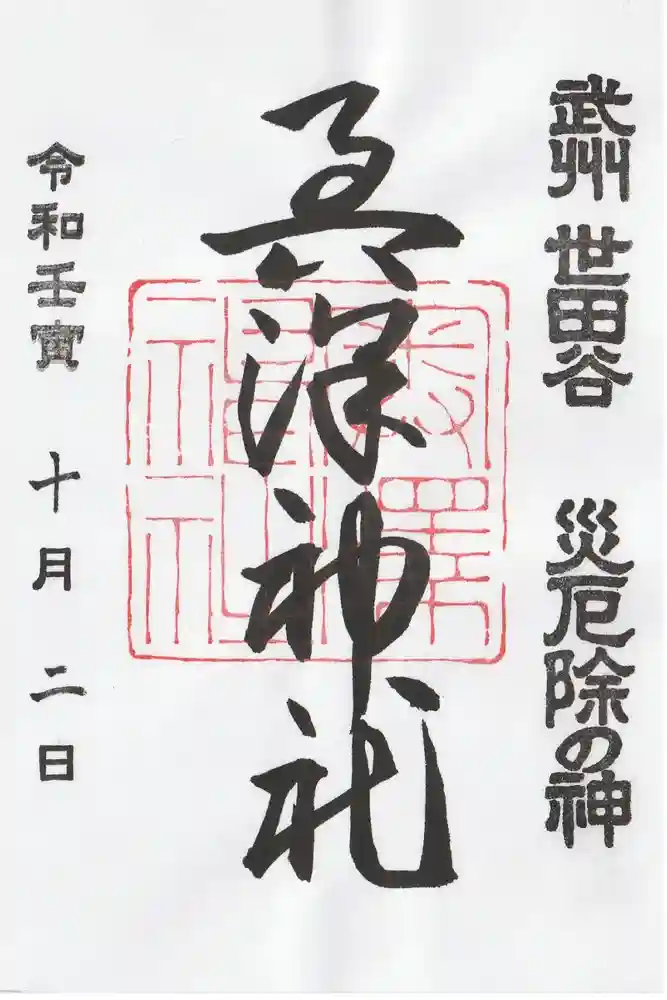 武州 世田谷 災厄除の神
奥澤神社
奥澤
神社
令和壬寅 十月 二日